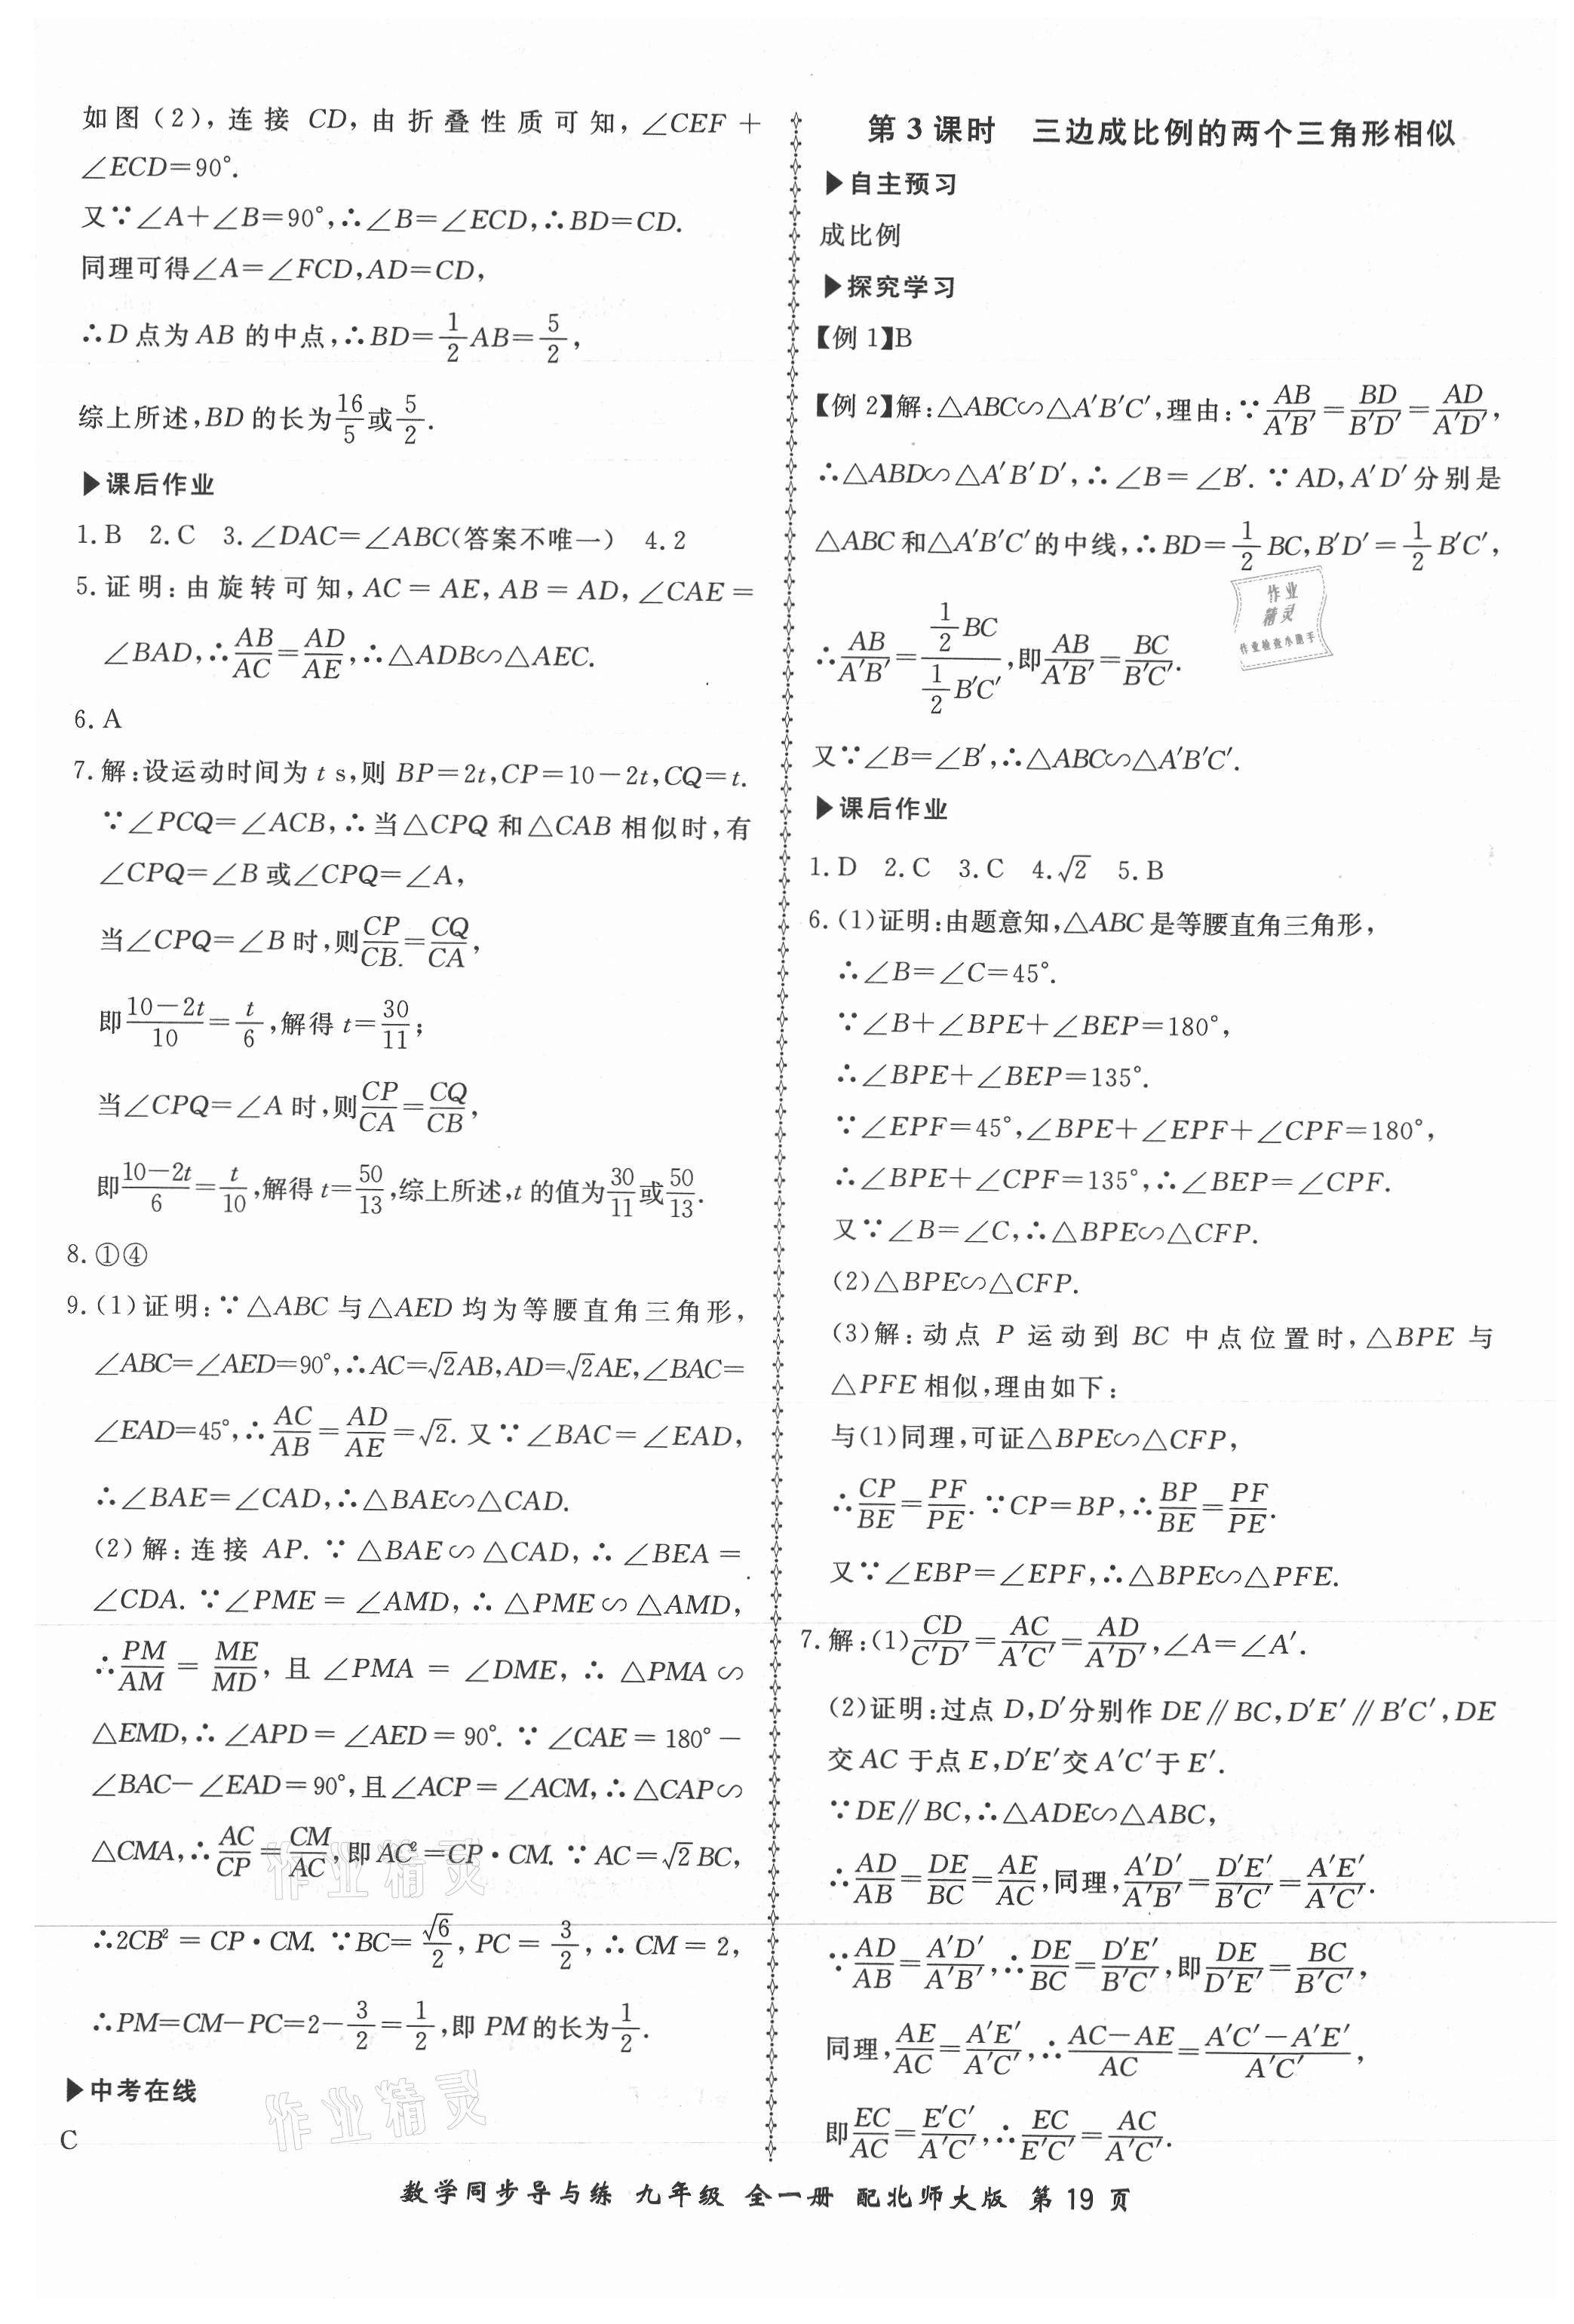 如图(2),连接 CD,由折叠性质可知,∠CEF+
∠ECD=90°.
又∵∠A+∠B=90°,∴∠B=∠ECD,∴BD=CD.
同理可得∠A=∠FCD,AD=CD,
∴D 点为 AB 的中点,∴BD=1/2 AB=5/2,
综上所述,BD 的长为16/5或5/2.
▶课后作业
1.B 2.C 3.∠DAC=∠ABC(答案不唯一) 4.2
5.证明:由旋转可知,AC=AE,AB=AD,∠CAE=
∠BAD,∴AB/AC=AD/AE,∴△ADB∽△AEC.
6.A
7.解:设运动时间为 t s,则 BP=2t,CP=10-2t,CQ=t.
∵∠PCQ=∠ACB,∴当△CPQ 和△CAB 相似时,有
∠CPQ=∠B 或∠CPQ=∠A,
当∠CPQ=∠B 时,则CP/CB.=CQ/CA,
即(10-2t)/10=t/6,解得 t=30/11;
当∠CPQ=∠A 时,则CP/CA=CQ/CB,
即(10-2t)/6=t/10,解得 t=50/13,综上所述,t 的值为30/11或50/13.
8.①④
9.(1)证明:∵△ABC 与△AED 均为等腰直角三角形,
∠ABC=∠AED=90°,∴AC=√2AB,AD=√2AE,∠BAC=
∠EAD=45°,∴AC/AB=AD/AE=√2.又∵∠BAC=∠EAD,
∴∠BAE=∠CAD,∴△BAE∽△CAD.
(2)解:连接 AP.∵△BAE∽△CAD,∴∠BEA=
∠CDA.∵∠PME=∠AMD,∴△PME∽△AMD,
∴PM/AM=ME/MD,且∠PMA=∠DME,∴△PMA∽
△EMD,∴∠APD=∠AED=90°.∵∠CAE=180°-
∠BAC-∠EAD=90°,且∠ACP=∠ACM,∴△CAP∽
△CMA,∴AC/CP=CM/AC,即 AC²=CP·CM.∵AC=√2BC,
∴2CB²=CP·CM.∵BC=√6/2,PC=3/2,∴CM=2,
∴PM=CM-PC=2-3/2=1/2,即 PM的长为1/2.
▶中考在线
C
第3课时 三边成比例的两个三角形相似
▶自主预习
成比例
▶探究学习
【例1】B
【例2】解:△ABC∽△A′B′C′,理由:∵AB/A′B′=BD/B′D′=AD/A′D′,
∴△ABD∽△A′B′D′,∴∠B=∠B′.∵AD,A′D′分别是
△ABC和△A′B′C′的中线,∴BD=1/2 BC,B′D′=1/2 B′C′,
∴AB/A′B′=(1/2 BC)/(1/2 B′C′),即AB/A′B′=BC/B′C′.
又∵∠B=∠B′,∴△ABC∽△A′B′C′.
▶课后作业
1.D 2.C 3.C 4.√2 5.B
6.(1)证明:由题意知,△ABC是等腰直角三角形,
∴∠B=∠C=45°.
∵∠B+∠BPE+∠BEP=180°,
∴∠BPE+∠BEP=135°.
∵∠EPF=45°,∠BPE+∠EPF+∠CPF=180°,
∴∠BPE+∠CPF=135°,∴∠BEP=∠CPF.
又∵∠B=∠C,∴△BPE∽△CFP.
(2)△BPE∽△CFP.
(3)解:动点 P 运动到 BC 中点位置时,△BPE 与
△PFE相似,理由如下:
与(1)同理,可证△BPE∽△CFP,
∴CP/BE=PF/PE.∵CP=BP,∴BP/BE=PF/PE.
又∵∠EBP=∠EPF,∴△BPE∽△PFE.
7.解:(1)CD/C′D′=AC/A′C′=AD/A′D′,∠A=∠A′.
(2)证明:过点 D,D′分别作 DE∥BC,D′E′∥B′C′,DE
交 AC 于点 E,D′E′交 A′C′于 E′.
∵DE∥BC,∴△ADE∽△ABC,
∴AD/AB=DE/BC=AE/AC,同理,A′D′/A′B′=D′E′/B′C′=A′E′/A′C′.
∵AD/AB=A′D′/A′B′,∴DE/BC=D′E′/B′C′,即DE/D′E′=BC/B′C′,
同理,AE/AC=A′E′/A′C′,∴(AC-AE)/AC=(A′C′-A′E′)/A′C′,
即EC/AC=E′C′/A′C′,∴EC/E′C′=AC/A′C′.
作业
精灵
作业检查小助手
作业精灵
作业精灵
数学同步导与练 九年级 全一册 配北师大版 第19页